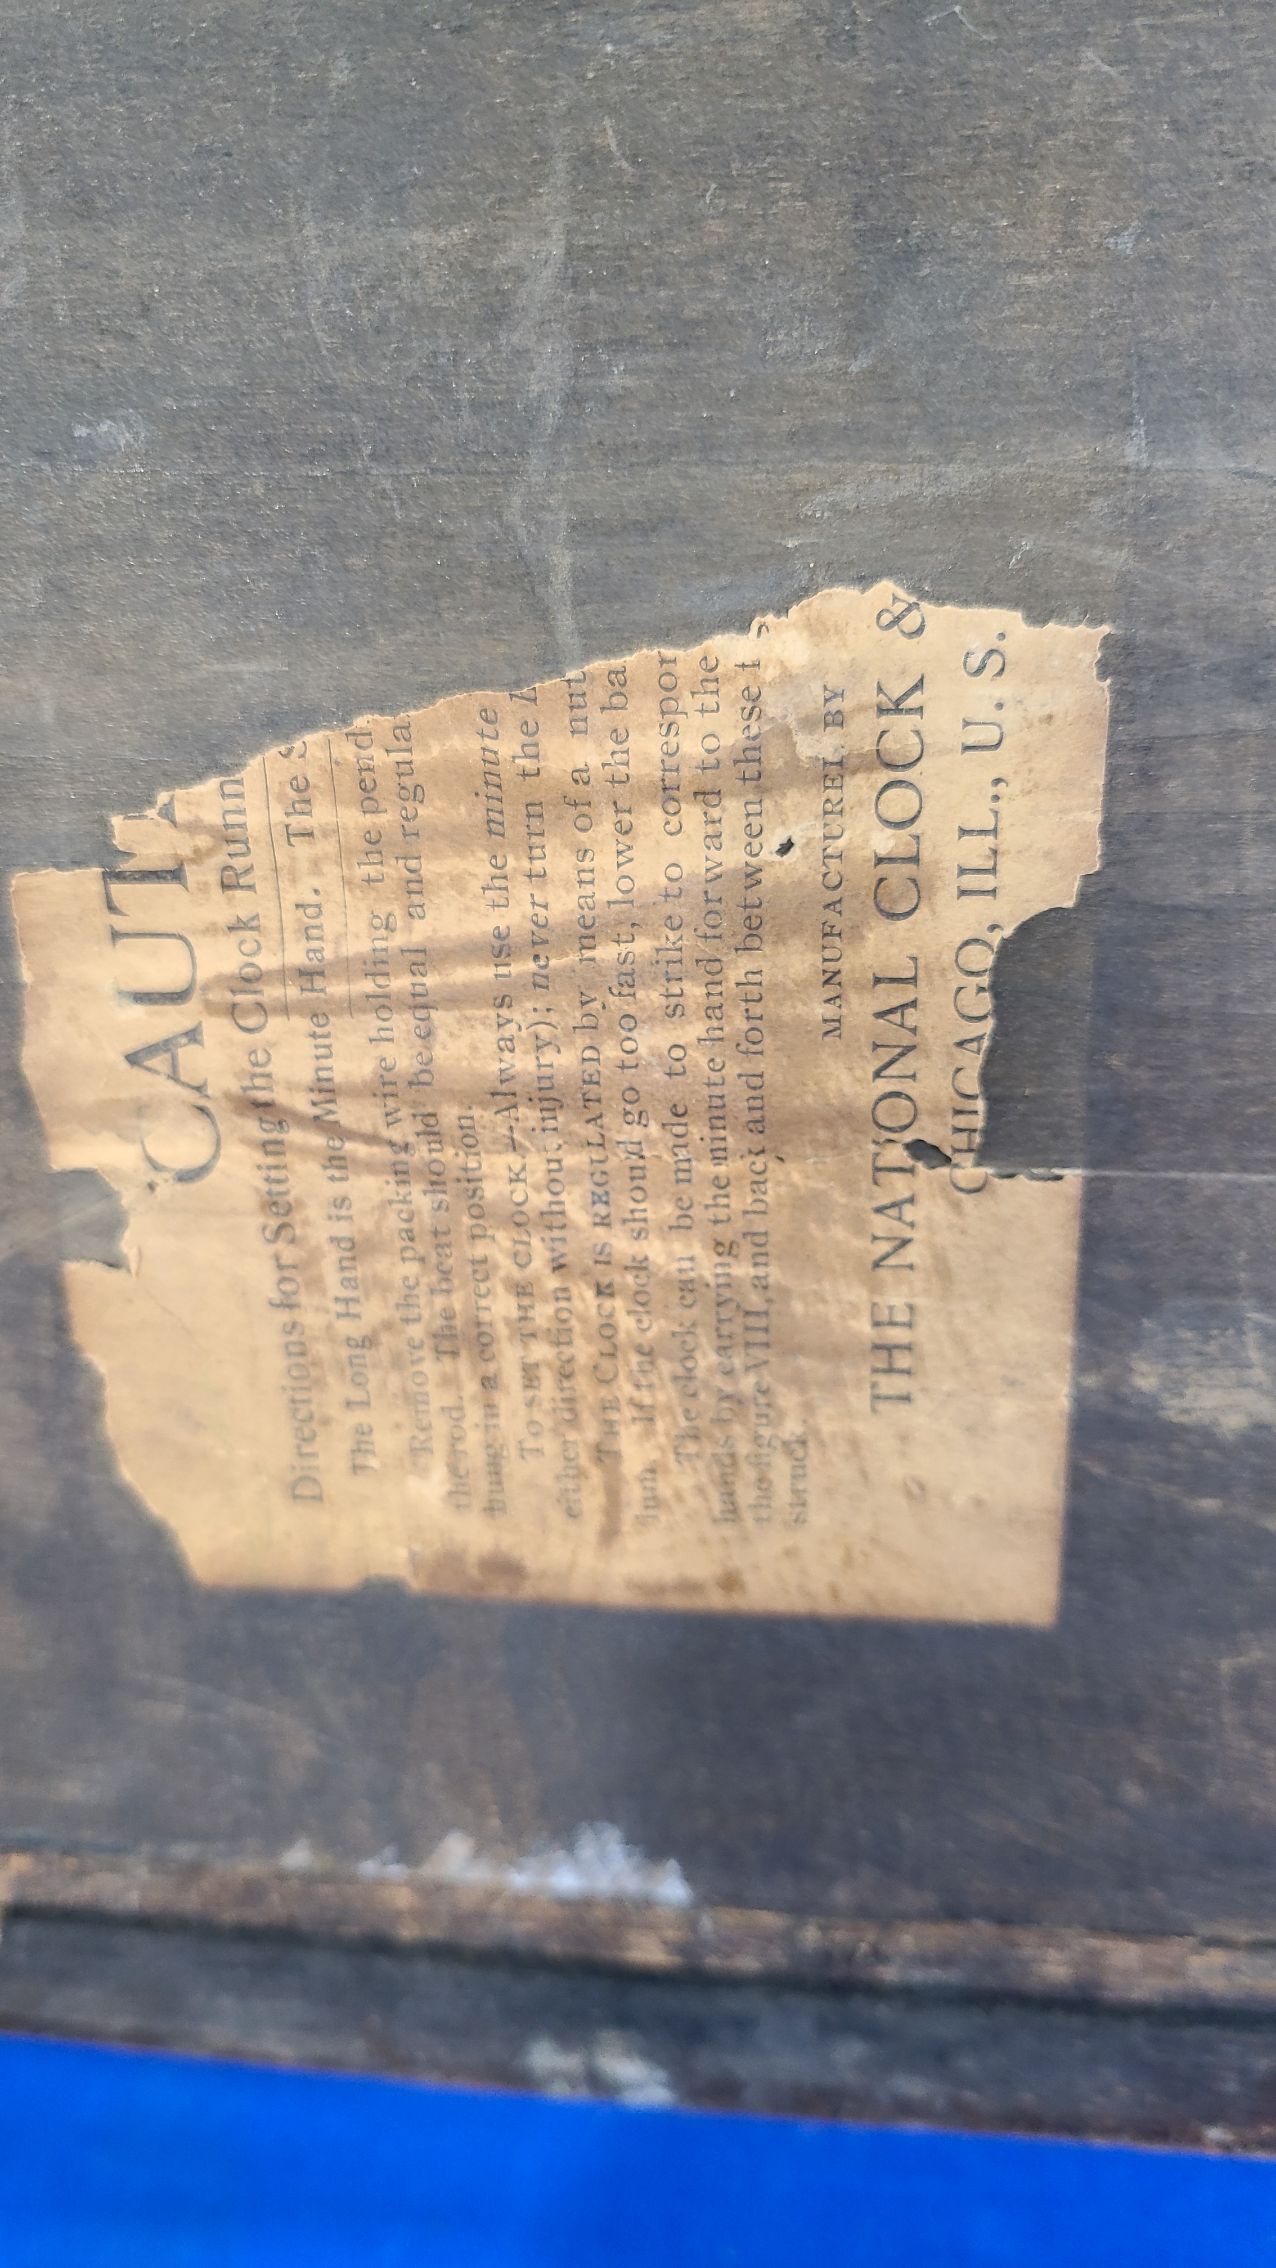 CAUT
Directions for Setting the Clock Runn
The Long Hand is the Minute Hand. The
Remove the packing wire holding the pend
the rod. The beat should be equal and regula
hung in a correct position.
To SET THE CLOCK.—Always use the minute
either direction without injury); never turn the
THE CLOCK IS REGULATED by means of a nut
lum. If the clock should go too fast, lower the ba
The clock can be made to strike to correspon
hands by carrying the minute hand forward to the
the figure VIII, and back and forth between these t
struck.
MANUFACTURED BY
THE NATIONAL CLOCK &
CHICAGO, ILL., U. S.